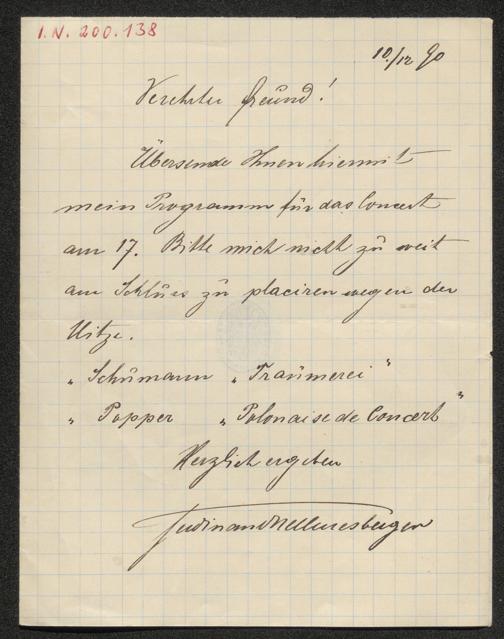 I.N. 200.138
10./12 90
Verehrter Freund!
Übersende Ihnen hiermit
mein Programm für das Concert
am 17. Bitte mich nicht zu weit
am Schluss zu placiren wegen der
Hitze.
„ Schumann „ Traumerei "
„ Popper „ Polonaise de Concert "
Herzlich ergeben
Ferdinand Hellmesberger